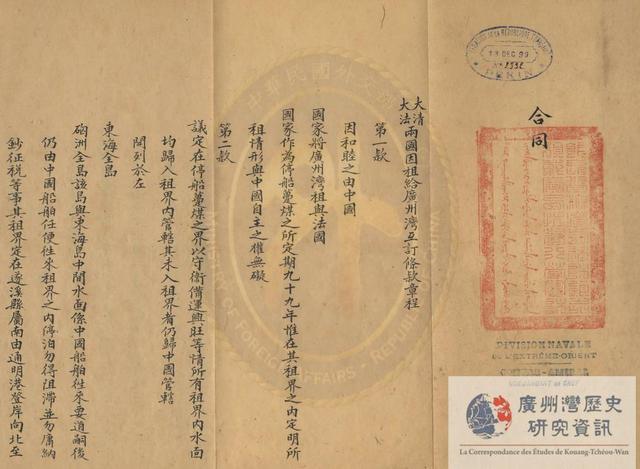 合同
大清
大法
兩國因租給廣州灣互訂條款章程
第一款
因和睦之由中國
國家將廣州灣租與法國
國家作為停船躉煤之所定期九十九年惟在其租界之內定明所
租情形與中國自主之權無礙
第二款
議定在停船躉煤之界以守衛備運興旺等情所有租界內水面
均歸入租界內管轄其未入租界者仍歸中國管轄
開列於左
東海全島
硇洲全島該島與東海島中間水面係中國船舶往來要道嗣後
仍由中國船舶任便往來租界之內停泊勿得阻滯並勿庸納
鈔征稅等事其租界定在遂溪縣屬南由通明港登岸向北至
13 DEC 99
PEKIN
DIVISION NAVALE
DE L'EXTRÊME-ORIENT
CONTRE-AMIRAL
COMMANDANT EN CHEF
中華民國外交部
MINISTRY OF FOREIGN AFFAIRS REPUBLIC
廣州灣歷史
研究資訊
La Correspondance des Études de Kouang-Tchéou-Wan